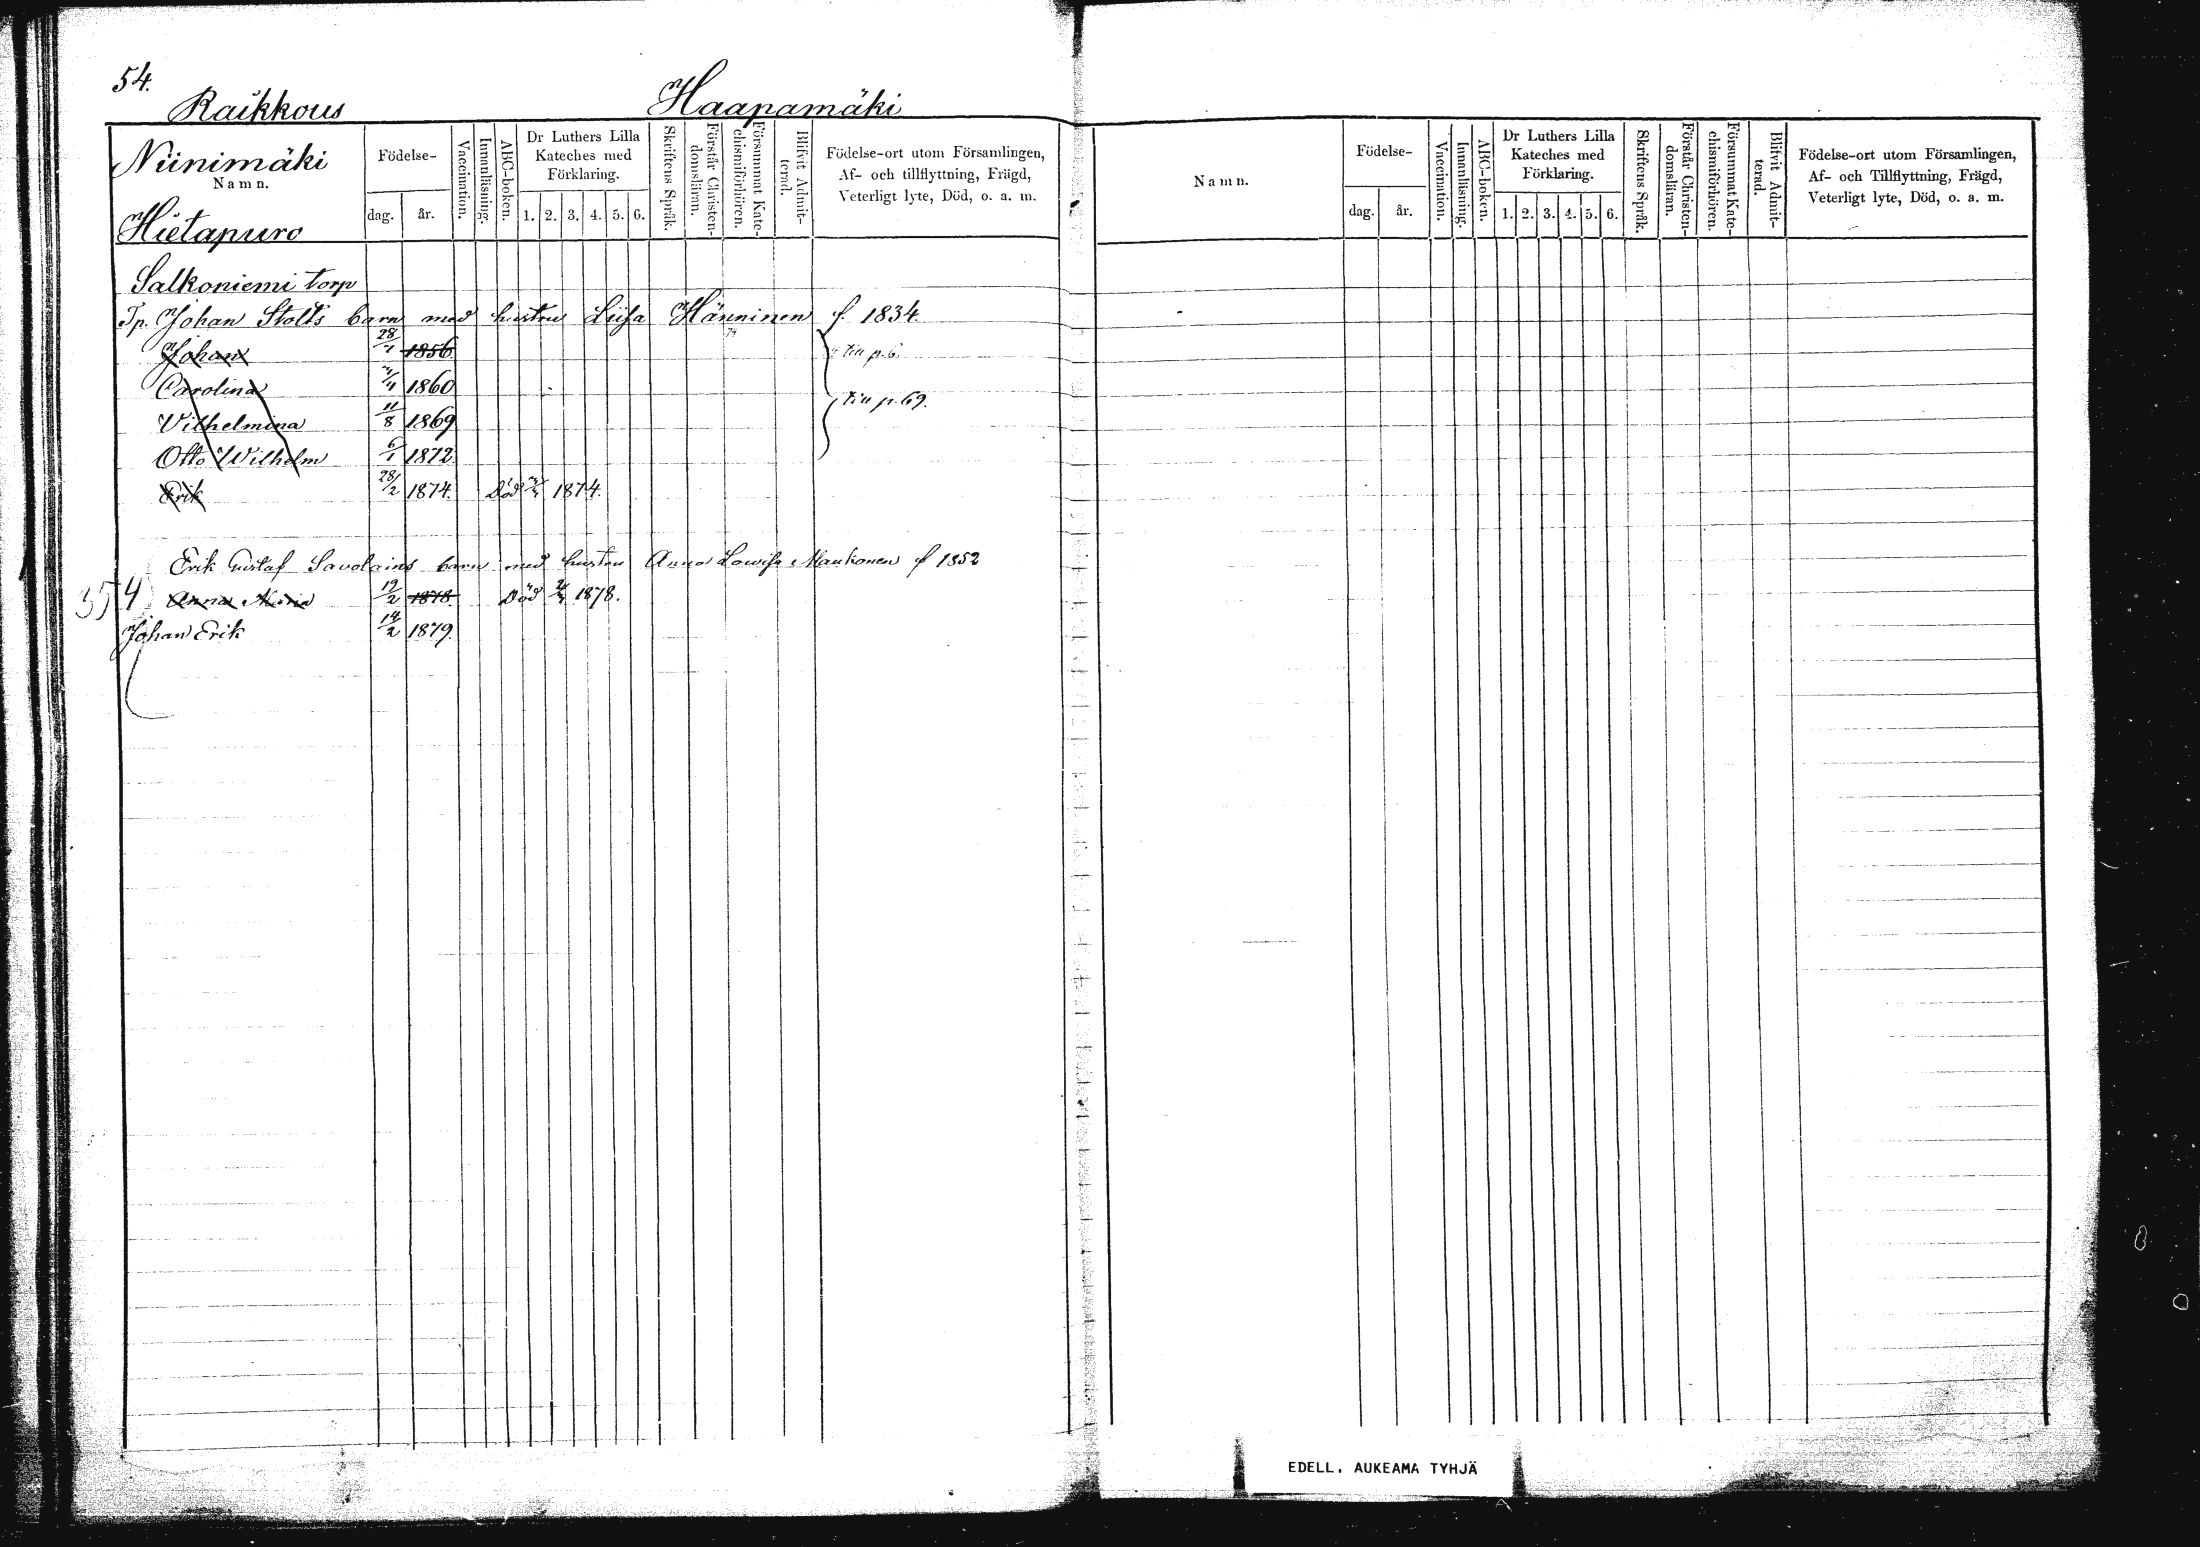 54.
Raikkous Haapamäki
Niinimäki
Namn.
Hietapuro
Födelse-
dag. år.
Vaccination.
Innanläsning.
ABC-boken.
Dr Luthers Lilla
Kateches med
Förklaring.
1. 2. 3. 4. 5. 6.
Skriftens Språk.
Förstår Christen-
domsläran.
Försummat Kate-
chismiförhören.
Blifvit Admit-
terad.
Födelse-ort utom Församlingen,
Af- och tillflyttning, Frägd,
Veterligt lyte, Död, o. a. m.
Salkoniemi torp
Tp. Johan Stolts barn med hustru Liisa Hänninen f. 1834.
Johan 28/4 1856 till p. 6
Carolina 1860
till p. 69.
Vilhelmina 11/8 1869
Otto Wilhelm 6/1 1872
Erik 28/2 1874. Död 1874.
Erik Gustaf Savolains barn med hustru Anna Lovisa Mankonen f 1852
354 Anna Maria 19/2 1878. Död 1878.
Johan Erik 14/2 1879.
Namn.
Födelse-
dag. år.
Vaccination.
Innanläsning.
ABC-boken.
Dr Luthers Lilla
Kateches med
Förklaring.
1. 2. 3. 4. 5. 6.
Skriftens Språk.
Förstår Christen-
domsläran.
Försummat Kate-
chismiförhören.
Blifvit Admit-
terad.
Födelse-ort utom Församlingen,
Af- och Tillflyttning, Frägd,
Veterligt lyte, Död, o. a. m.
EDELL. AUKEAMA TYHJÄ